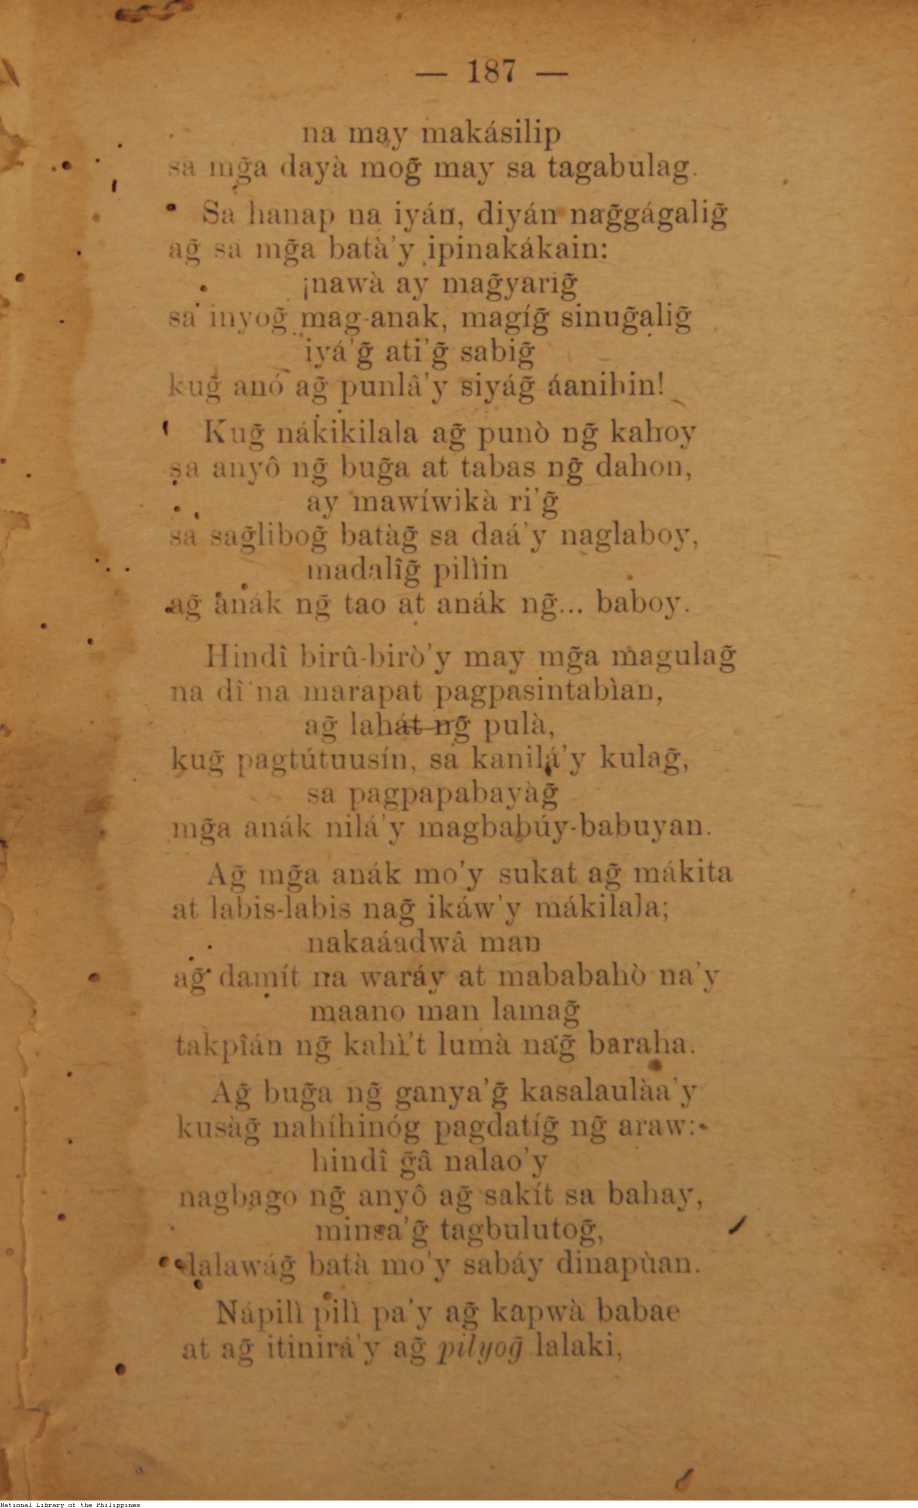 — 187 —
na may makásilip
sa mg̃a dayà mog̃ may sa tagabulag.
Sa hanap na iyán, diyán nag̃gágalig̃
ag̃ sa mg̃a batà'y ipinakákain:
¡nawà ay mag̃yarig̃
sa inyog̃ mag-anak, magíg̃ sinug̃alig̃
iyá'g̃ ati'g̃ sabig̃
kug̃ anó ag̃ punlâ'y siyág̃ áanihin!
Kug̃ nákikilala ag̃ punò ng̃ kahoy
sa anyô ng̃ bug̃a at tabas ng̃ dahon,
ay mawíwikà ri'g̃
sa sag̃libog̃ batàg̃ sa daá'y naglaboy,
madalîg̃ pilìin
ag̃ anák ng̃ tao at anák ng̃... baboy.
Hindî birû-birò'y may mg̃a magulag̃
na dî na marapat pagpasintabìan,
ag̃ lahát ng̃ pulà,
kug̃ pagtútuusín, sa kanilá'y kulag̃,
sa pagpapabayàg̃
mg̃a anák nilá'y magbabúy-babuyan.
Ag̃ mg̃a anák mo'y sukat ag̃ mákita
at labis-labis nag̃ ikáw'y mákilala;
nakaáadwâ man
ag̃ damít na waráy at mababahò na'y
maano man lamag̃
takpîán ng̃ kahì't lumà nag̃ baraha.
Ag̃ bug̃a ng̃ ganya'g̃ kasalaulàa'y
kusàg̃ nahíhinóg pagdatíg̃ ng̃ araw:
hindî g̃â nalao'y
nagbago ng̃ anyô ag̃ sakít sa bahay,
minsa'g̃ tagbulutog̃,
dalawág̃ batà mo'y sabáy dinapùan.
Nápilì pilì pa'y ag̃ kapwà babae
at ag̃ itinirá'y ag̃ pilyog̃ lalaki,
National Library of the Philippines